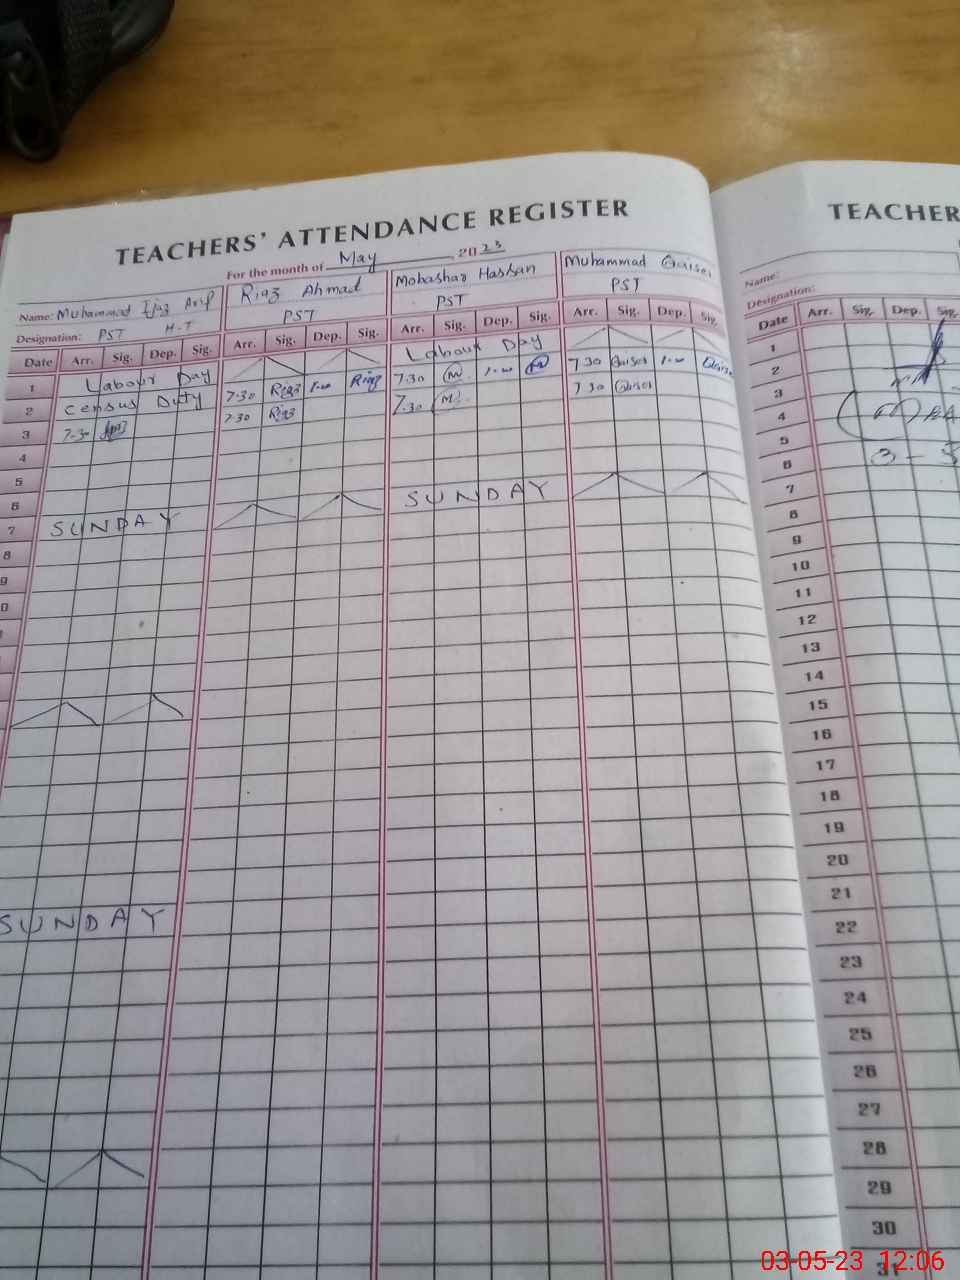 TEACHERS' ATTENDANCE REGISTER
For the month of May, 2023
Name: Muhammad Ijaz Arif Riaz Ahmad Mobashar Hassan Muhammad Qaiser
Designation: PST H-T PST PST PST
Date Arr. Sig. Dep. Sig. Arr. Sig. Dep. Sig. Arr. Sig. Dep. Sig. Arr. Sig. Dep. Sig.
1 Labour Day Labour Day
2 Census Duty 7-30 Riaz 1-00 Riaz 7-30 M 1-00 M 7-30 Qaiser 1-00 Qaiser
3 7-30 7-30 Riaz 7-30 M 7-30 Qaiser
4
5
6
7 SUNDAY SUNDAY
8
9
0
SUNDAY
TEACHER
Name:
Designation:
Date Arr. Sig. Dep. Sig.
1
2
3
4
5
6
7
8
9
10
11
12
13
14
15
16
17
18
19
20
21
22
23
24
25
26
27
28
29
30
31
3-5
03-05-23 12:06